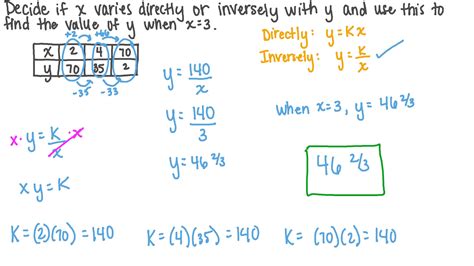 Decide if x varies directly or inversely with y and use this to
find the value of y when x=3.
Directly: y=Kx
Inversely: y=K/x ✓
+2 +66
x 2 4 70
y 70 35 2
-35 -33
y=140/x
y=140/3
y=46 2/3
when x=3, y=46 2/3
46 2/3
x·y=K/x·x
xy=K
K=(2)(70)=140
K=(4)(35)=140
K=(70)(2)=140